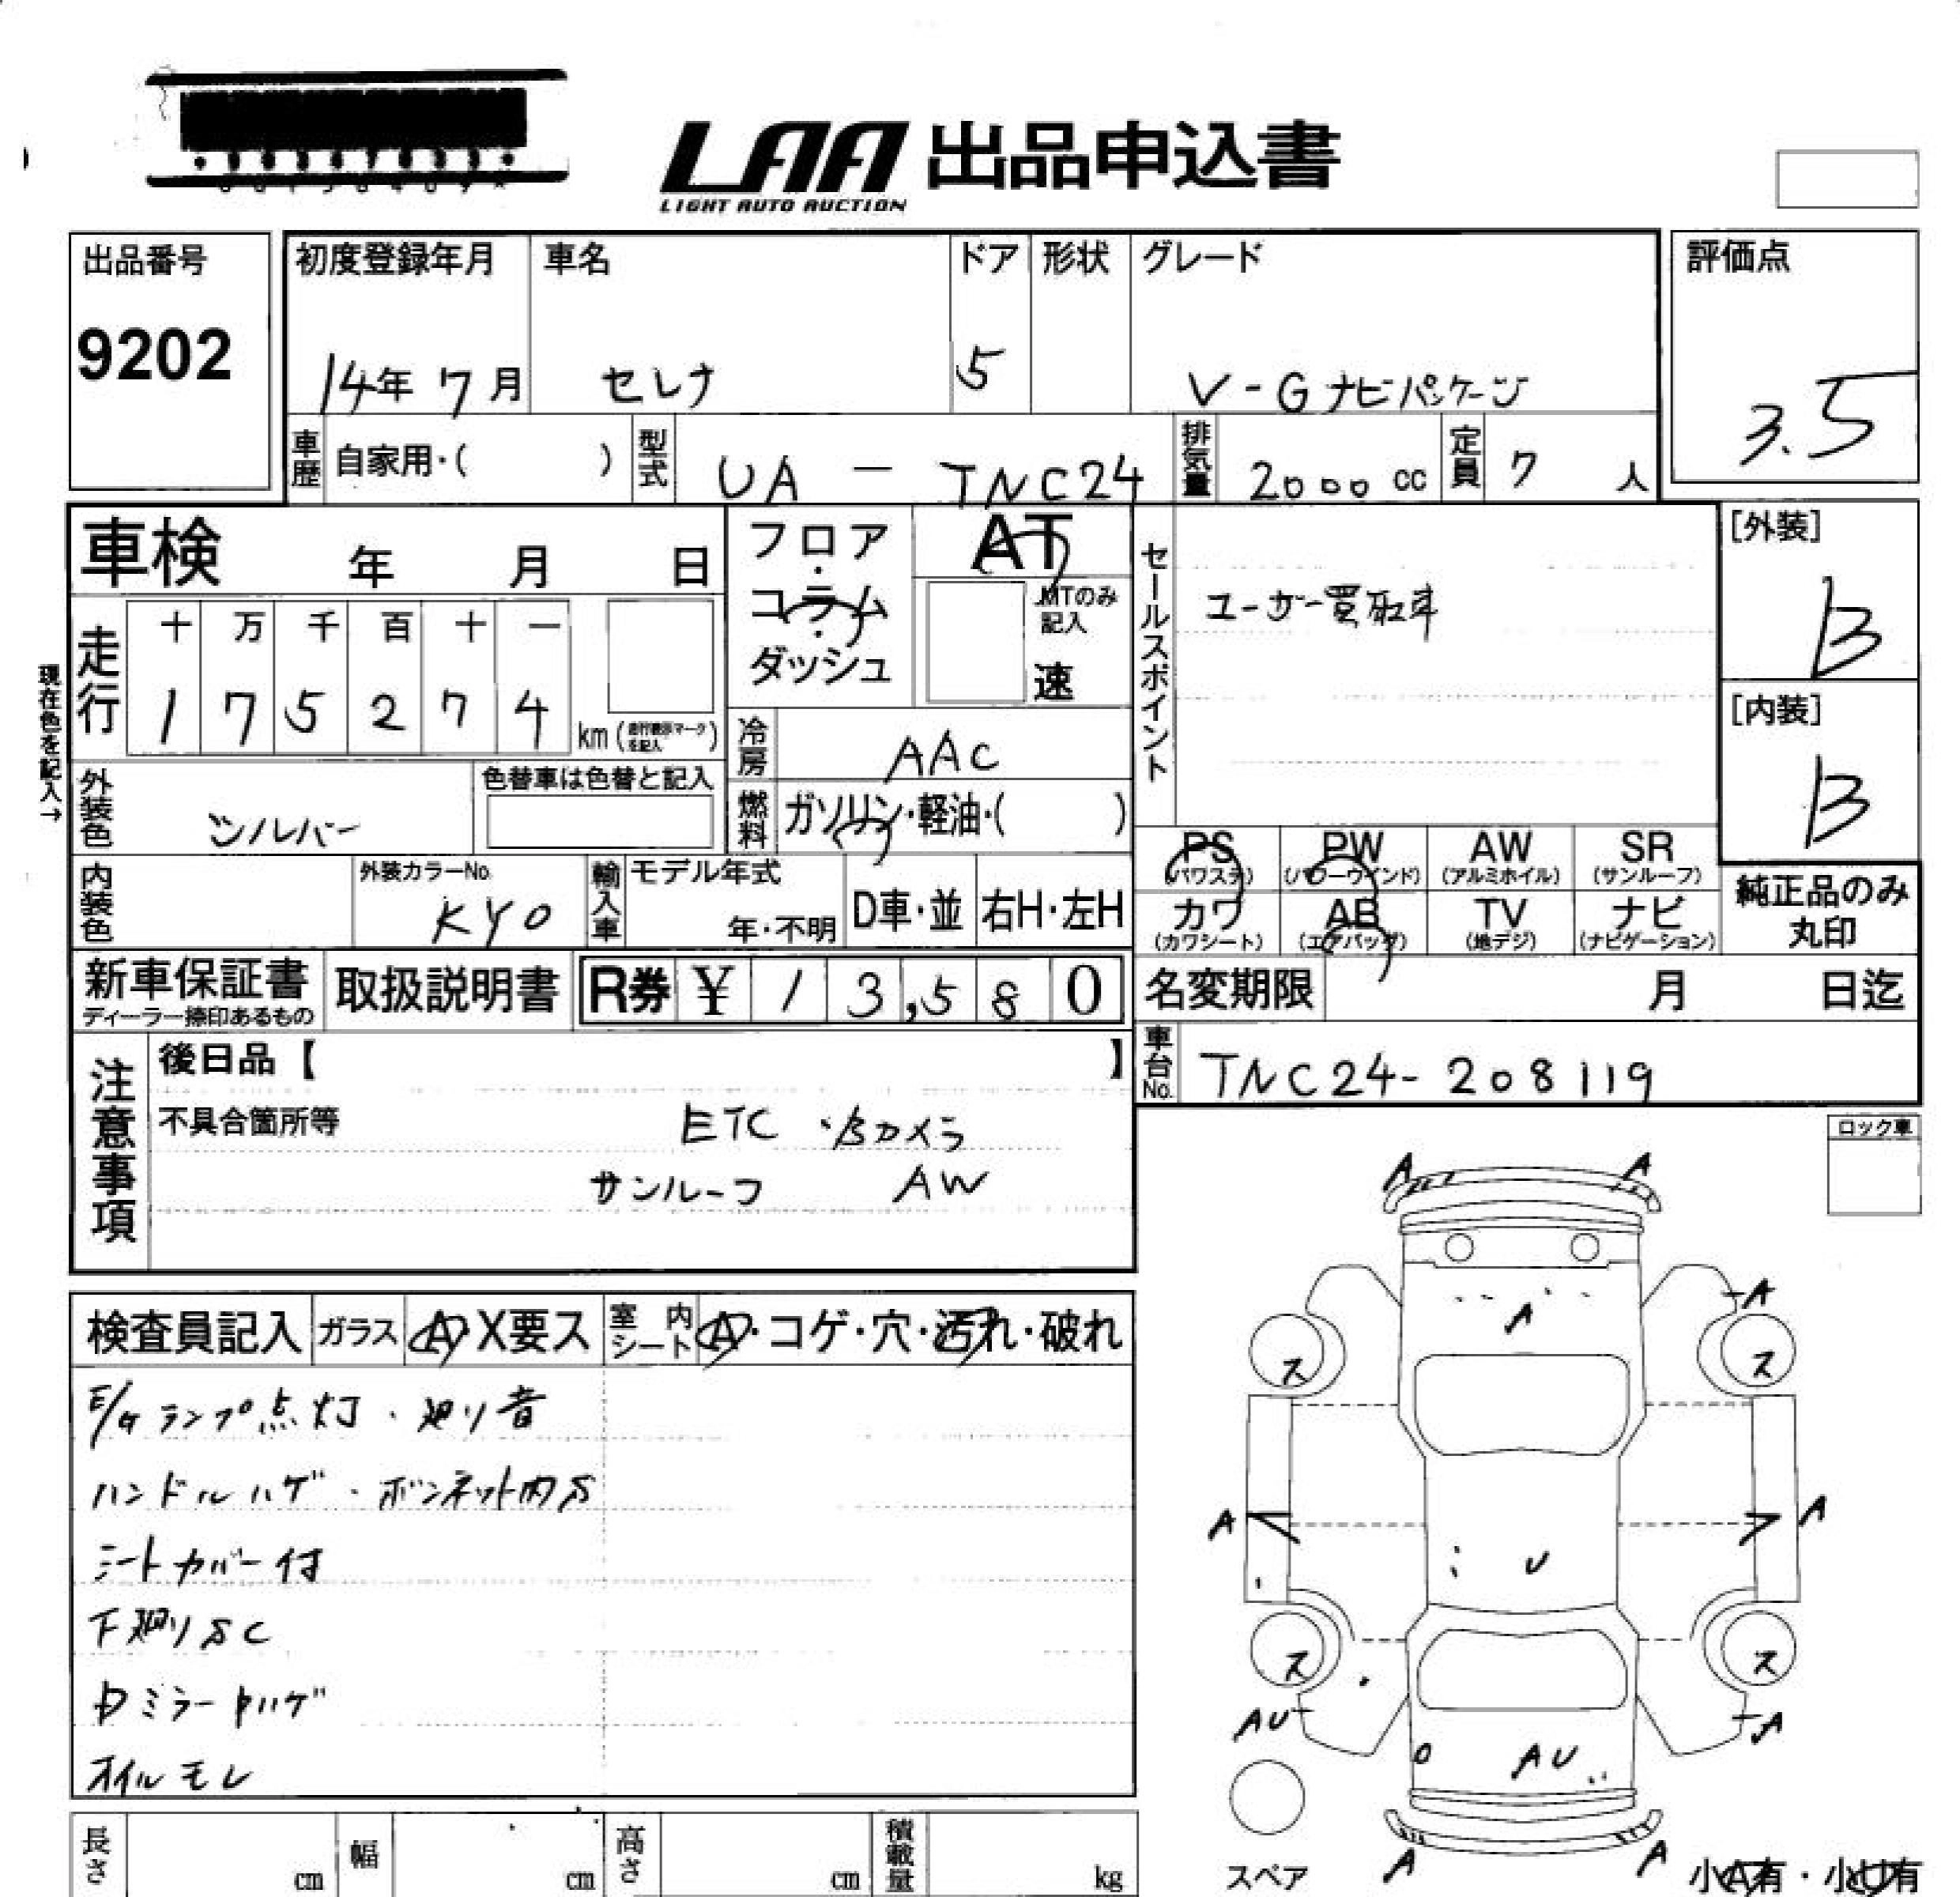 LAA 出品申込書
LIGHT AUTO AUCTION
出品番号
9202
初度登録年月
14年 7月
車名
セレナ
ドア
5
形状
グレード
V-G ナビパッケージ
評価点
3.5
車歴
自家用・( )
型式
UA - TNC24
排気量
2000 cc
定員
7 人
車検 年 月 日
フロア・コラム・ダッシュ
AT
MTのみ記入
速
セールスポイント
ユーザー買取車
[外装]
B
[内装]
B
現在色を記入→
走行
十 万 千 百 十 一
1 7 5 2 7 4
km (走行表示マークを記入)
冷房
AAC
外装色
シルバー
色替車は色替と記入
燃料
ガソリン・軽油・( )
PS
(パワステ)
PW
(パワーウインド)
AW
(アルミホイル)
SR
(サンルーフ)
カワ
(カワシート)
AB
(エアバッグ)
TV
(地デジ)
ナビ
(ナビゲーション)
純正品のみ
丸印
内装色
外装カラーNo.
KY0
輸入車
モデル年式
年・不明
D車・並
右H・左H
新車保証書
ディーラー捺印あるもの
取扱説明書
R券 ¥ 1 3,5 8 0
名変期限 月 日迄
車台No.
TNC24-208119
注意事項
後日品【 】
不具合箇所等
ETC ・Bカメラ
サンルーフ AW
ロック車
検査員記入
ガラス
A・X要ス
室内シート
A・コゲ・穴・汚れ・破れ
E/Gランプ点灯・廻り音
ハンドルハゲ・ボンネット内S
シートカバー付
下廻りSC
ミラー ハゲ
オイルモレ
A A
A
A
ス ス
A A
U
ス ス
AU A
AU
A A
スペア
小A有・小U有
長さ cm
幅 cm
高さ cm
積載量 kg